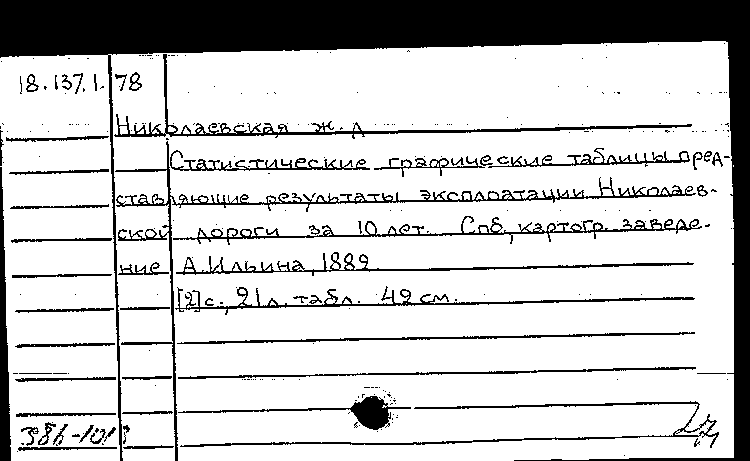 18.137.1.78
Николаевская ж.д
Статистические графические таблицы пред-
ставляющие результаты эксплоатации Николаев-
ской дороги за 10 лет. Спб, картогр. заведе-
ние А.Ильина, 1882
[2]с., 21л. табл. 42 см.